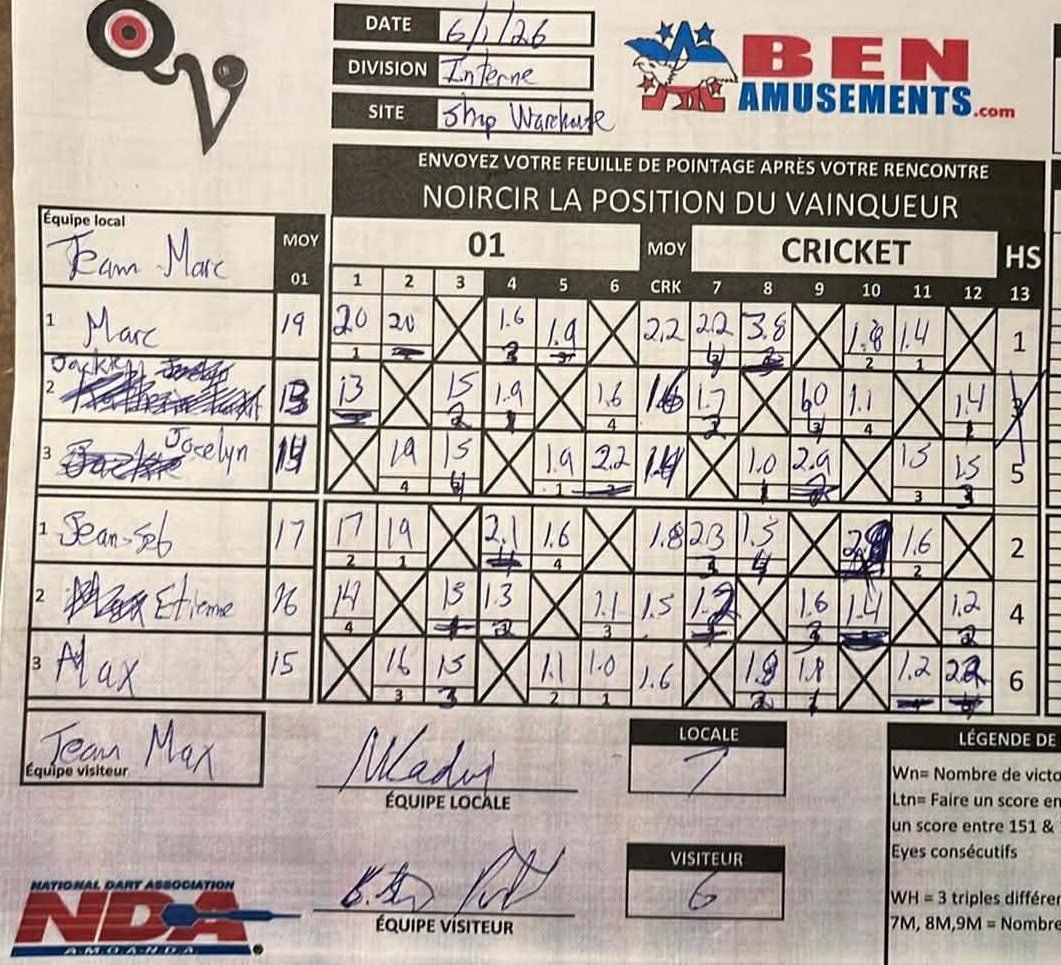 QV
DATE 6/1/26
DIVISION Interne
SITE Ship Warehouse
BEN
AMUSEMENTS.com
ENVOYEZ VOTRE FEUILLE DE POINTAGE APRÈS VOTRE RENCONTRE
NOIRCIR LA POSITION DU VAINQUEUR
Équipe local
Team Marc
MOY 01
01 MOY CRICKET HS
1 2 3 4 5 6 CRK 7 8 9 10 11 12 13
1 Marc 19 20 20 1.6 1.9 2.2 2.2 3.8 1.8 1.4 1
1 2 1
2 13 13 15 1.9 1.6 1.6 1.7 1.1 1.4
4 4
3 Jocelyn 19 15 1.9 2.2 1.0 2.9 15 15 5
4 1 3
1 Jean-Seb 17 17 19 2.1 1.6 1.8 2.3 1.5 1.6 2
2 1 4 2
2 Etienne 16 14 15 1.3 1.1 1.5 1.2 1.6 1.4 1.2 4
4 3
3 Max 15 16 15 1.1 1.0 1.6 1.8 1.2 6
3 2 1
Team Max
Équipe visiteur
ÉQUIPE LOCALE
LOCALE
7
ÉQUIPE VISITEUR
VISITEUR
6
LÉGENDE DE
Wn= Nombre de victo
Ltn= Faire un score en
un score entre 151 &
Eyes consécutifs
WH = 3 triples différe
7M, 8M,9M = Nombre
NATIONAL DART ASSOCIATION
NDA
A.M.O.A.N.D.A.